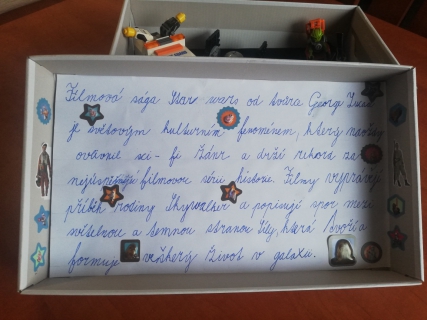 Filmová sága Star wars od tvůrce George Lucas
je světovým kulturním fenoménem, který navždy
ovlivnil sci-fi žánr a drží rekord za
nejúspěšnější filmovou sérii historie. Filmy vypráví
příběh rodiny Skywalker a popisují spor mezi
světelnou a temnou stranou Síly, která tvoří a
formuje veškerý život v galaxii.